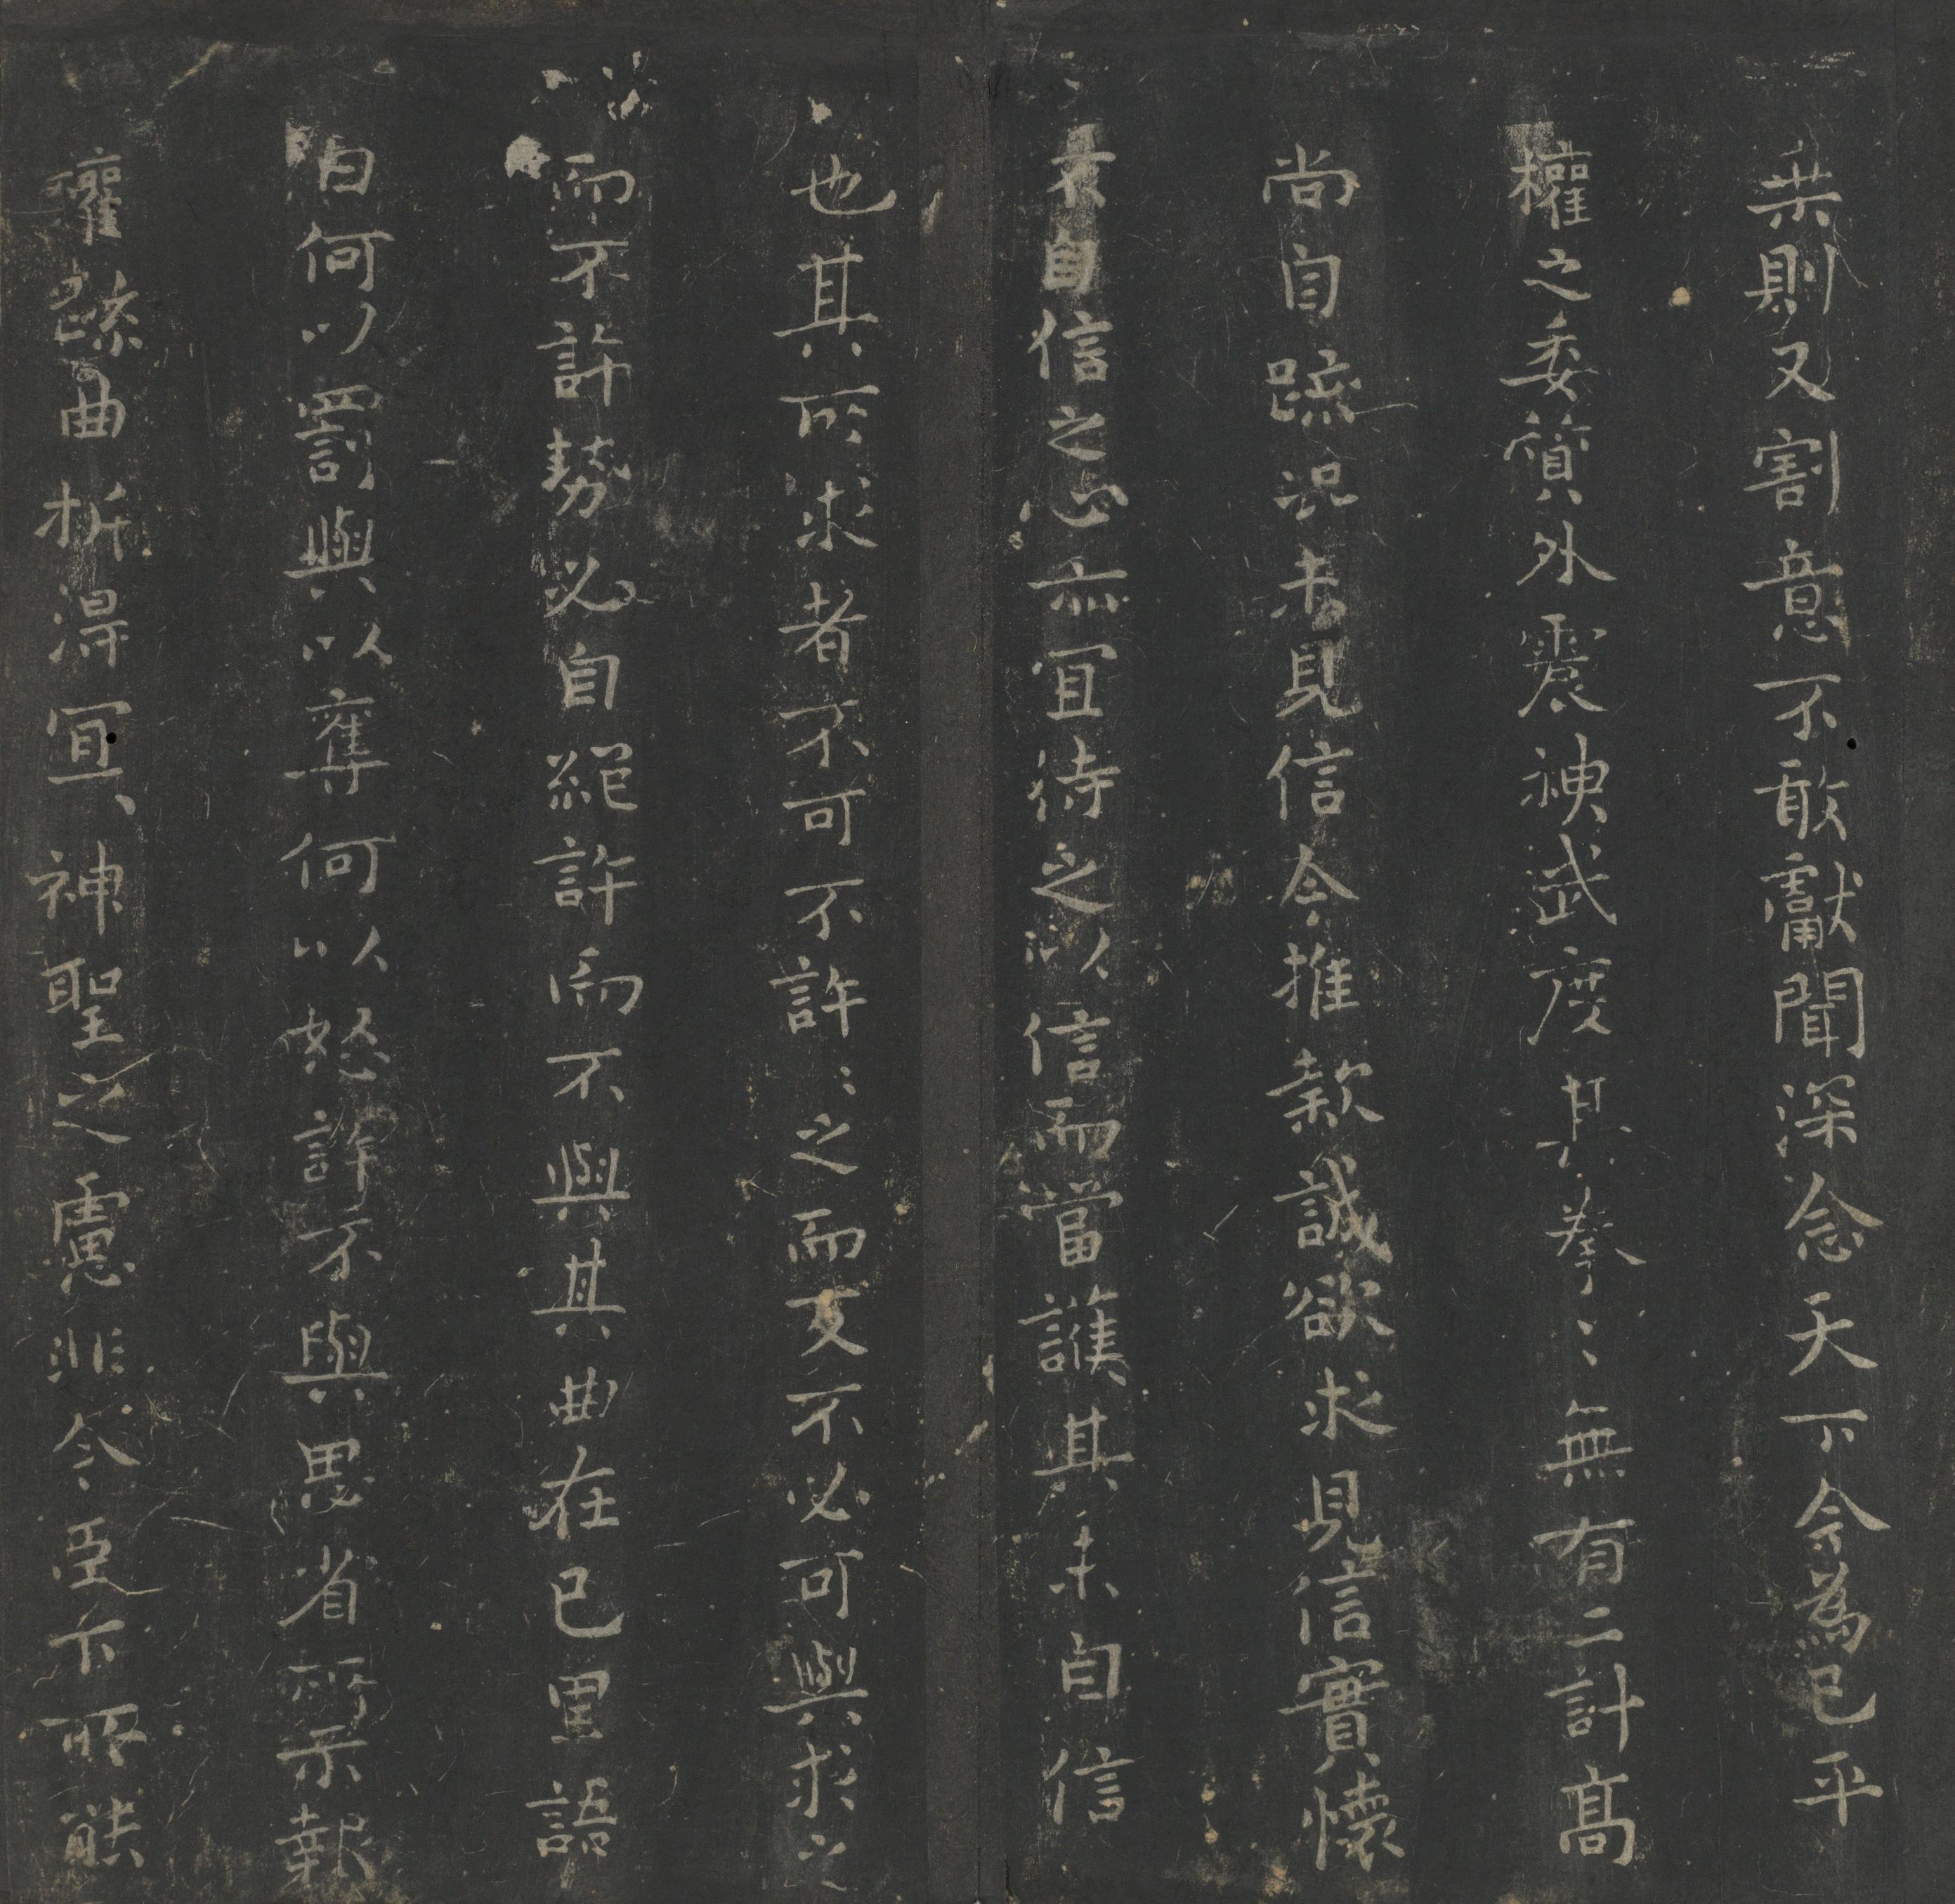 棄則又割意不敢獻聞深念天下今為已平
權之委質外震神武度其拳〻無有二計高
尚自疏況未見信今推款誠欲求見信實懷
不自信之心亦宜待之以信而當護其未自信
也其所求者不可不許〻之而反不必可與求之
而不許勢必自絕許而不與其曲在己里語
曰何以罰與以奪何以怒許不與思省所示報
權疏曲折得宜、神聖之慮非今臣下所能